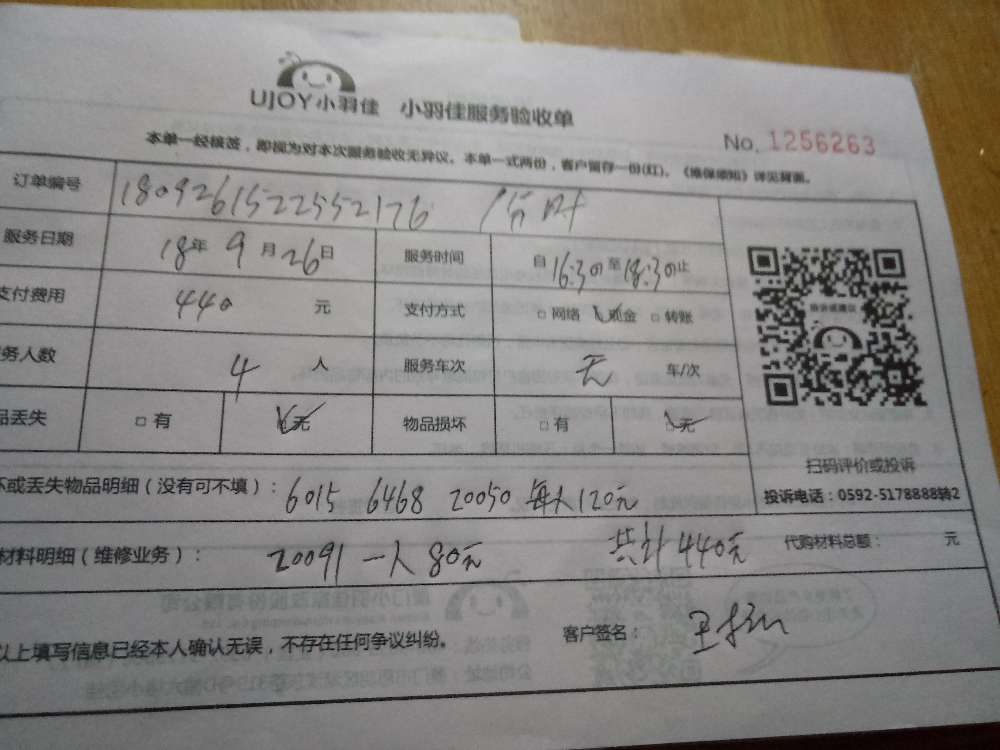 UJOY小羽佳 小羽佳服务验收单
No. 1256263
本单一经核签，即视为对本次服务验收无异议。本单一式两份，客户留存一份(红)。《维保须知》详见背面。
订单编号 1809261522552176
服务日期 18年9月26日 服务时间 自16:30至18:30止
支付费用 440 元 支付方式 □网络 现金 □转账
务人数 4 人 服务车次 无 车/次
品丢失 □有 无 物品损坏 □有 □无
坏或丢失物品明细（没有可不填）： 6015 6468 20050 每人120元
材料明细（维修业务）： 20091 一人80元 共计440元 代购材料总额： 元
以上填写信息已经本人确认无误，不存在任何争议纠纷。 客户签名：
扫码评价或投诉
投诉电话：0592-5178888转2